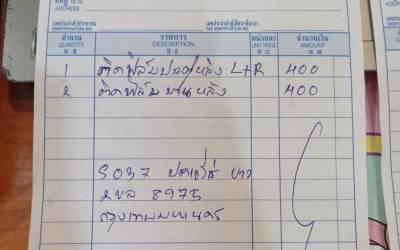 ที่อยู่
ADDRESS
เลขประจำตัวประชาชน
IDENTIFICATION NO.
เลขประจำตัวผู้เสียภาษีอากร
TAX IDENTIFICATION NO.
จำนวน รายการ หน่วยละ จำนวนเงิน
QUANTITY DESCRIPTION UNIT PRICE AMOUNT
1 ติดฟิล์ม หลัง L+R 400
2 ติดฟิล์ม บานหลัง 400
5037 ขาว
2ขล 8975
กรุงเทพมหานคร